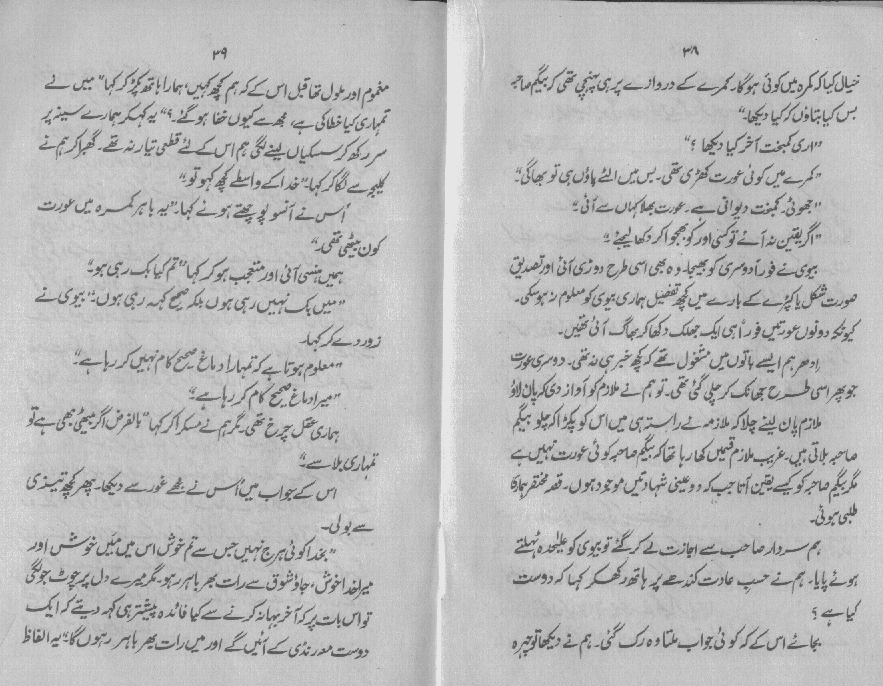 ۳۸
خیال کیا کہ کمرہ میں کوئی ہوگا۔ کمرے کے دروازے پر ہی پہنچی تھی کہ بیگم صاحبہ
بس کیا بتاؤں کہ کیا دیکھا۔"
"اری کمبخت آخر کیا دیکھا ؟"
"کمرے میں کوئی عورت کھڑی تھی۔ بس میں الٹے پاؤں ہی تو بھاگی۔"
"جھوٹی۔ کمبخت دیوانی ہے۔ عورت بھلا کہاں سے آئی۔"
"اگر یقین نہ آئے تو کسی اور کو بھجوا کر دکھا لیجئے۔"
بیوی نے فوراً دوسری کو بھیجا۔ وہ بھی اسی طرح دوڑی آئی اور تصدیق
صورت شکل یا کپڑے کے بارے میں کچھ تفصیل ہماری بیوی کو معلوم نہ ہوسکی۔
کیونکہ دونوں عورتیں فوراً ہی ایک جھلک دکھا کر بھاگ آئی تھیں۔
ادھر ہم ایسے باتوں میں مشغول تھے کہ کچھ خبر ہی نہ تھی۔ دوسری عورت
جو پھر اسی طرح جھانک کر چلی گئی تھی۔ تو ہم نے ملازم کو آواز دی کہ پان لاؤ
ملازم پان لینے چلا کہ ملازمہ نے راستہ ہی میں اس کو پکڑا کہ چلو بیگم
صاحبہ بلاتی ہیں۔ غریب ملازم قسمیں کھا رہا تھا کہ بیگم صاحبہ کوئی عورت نہیں ہے
مگر بیگم صاحبہ کو کیسے یقین آتا جب کہ دو عینی شہادتیں موجود ہوں۔ قصہ مختصر ہماری
طلبی ہوئی۔
ہم سردار صاحب سے اجازت لے کر گئے تو بیوی کو علیٰحدہ ٹہلتے
ہوئے پایا۔ ہم نے حسب عادت کندھے پر ہاتھ رکھکر کہا کہ دوست
کیا ہے ؟
بجائے اس کے کہ کوئی جواب ملتا وہ رک گئی۔ ہم نے دیکھا تو چہرہ
۳۹
مغموم اور ملول تھا قبل اس کے کہ ہم کچھ کہیں، ہمارا ہاتھ پکڑ کر کہا "میں نے
تمہاری کیا خطا کی ہے، مجھ سے کیوں خفا ہوگئے۔؟" یہ کہکر ہمارے سینہ پر
سر رکھ کر سسکیاں لینے لگی ہم اس کے لئے قطعی تیار نہ تھے۔ گھبرا کر ہم نے
کلیجے سے لگا کر کہا۔ "خدا کے واسطے کچھ کہو تو۔"
اُس نے آنسو پونچھتے ہوئے کہا۔ "یہ باہر کمرہ میں عورت
کون بیٹھی تھی۔"
ہمیں ہنسی آئی اور متعجب ہوکر کہا "تم کیا بک رہی ہو۔"
"میں بک نہیں رہی ہوں بلکہ صحیح کہہ رہی ہوں۔" بیوی نے
زور دے کر کہا۔
"معلوم ہوتا ہے کہ تمہارا دماغ صحیح کام نہیں کر رہا ہے۔"
"میرا دماغ صحیح کام کر رہا ہے۔"
ہماری عقل چرخ تھی۔ مگر ہم نے مسکرا کر کہا "بالفرض اگر بیٹھی بھی ہے تو
تمہاری بلا سے۔"
اس کے جواب میں اُس نے مجھے غور سے دیکھا۔ پھر کچھ تیزی
سے بولی۔
"بخدا کوئی ہرج نہیں جس سے تم خوش اس میں مَیں خوش اور
میرا خدا خوش، جاؤ شوق سے رات بھر باہر رہو۔ مگر میرے دل پر چوٹ جو لگی
تو اس بات پر کہ آخر بہانہ کرنے سے کیا فائدہ پیشتر ہی کہہ دیتے کہ ایک
دوست معہ رنڈی کے آئیں گے اور میں رات بھر باہر رہوں گا۔" یہ الفاظ